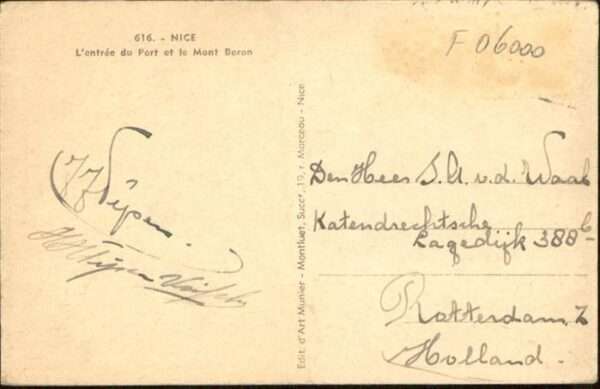 616. - NICE
L'entrée du Port et le Mont Boron
F 06000
Edit. d'Art Munier - Montluet, Succr, 19, r. Marceau - Nice
Den Heer S. A. v. d. Waal
Katendrechtsche
Lagedijk 388b
Rotterdam, Z
Holland.